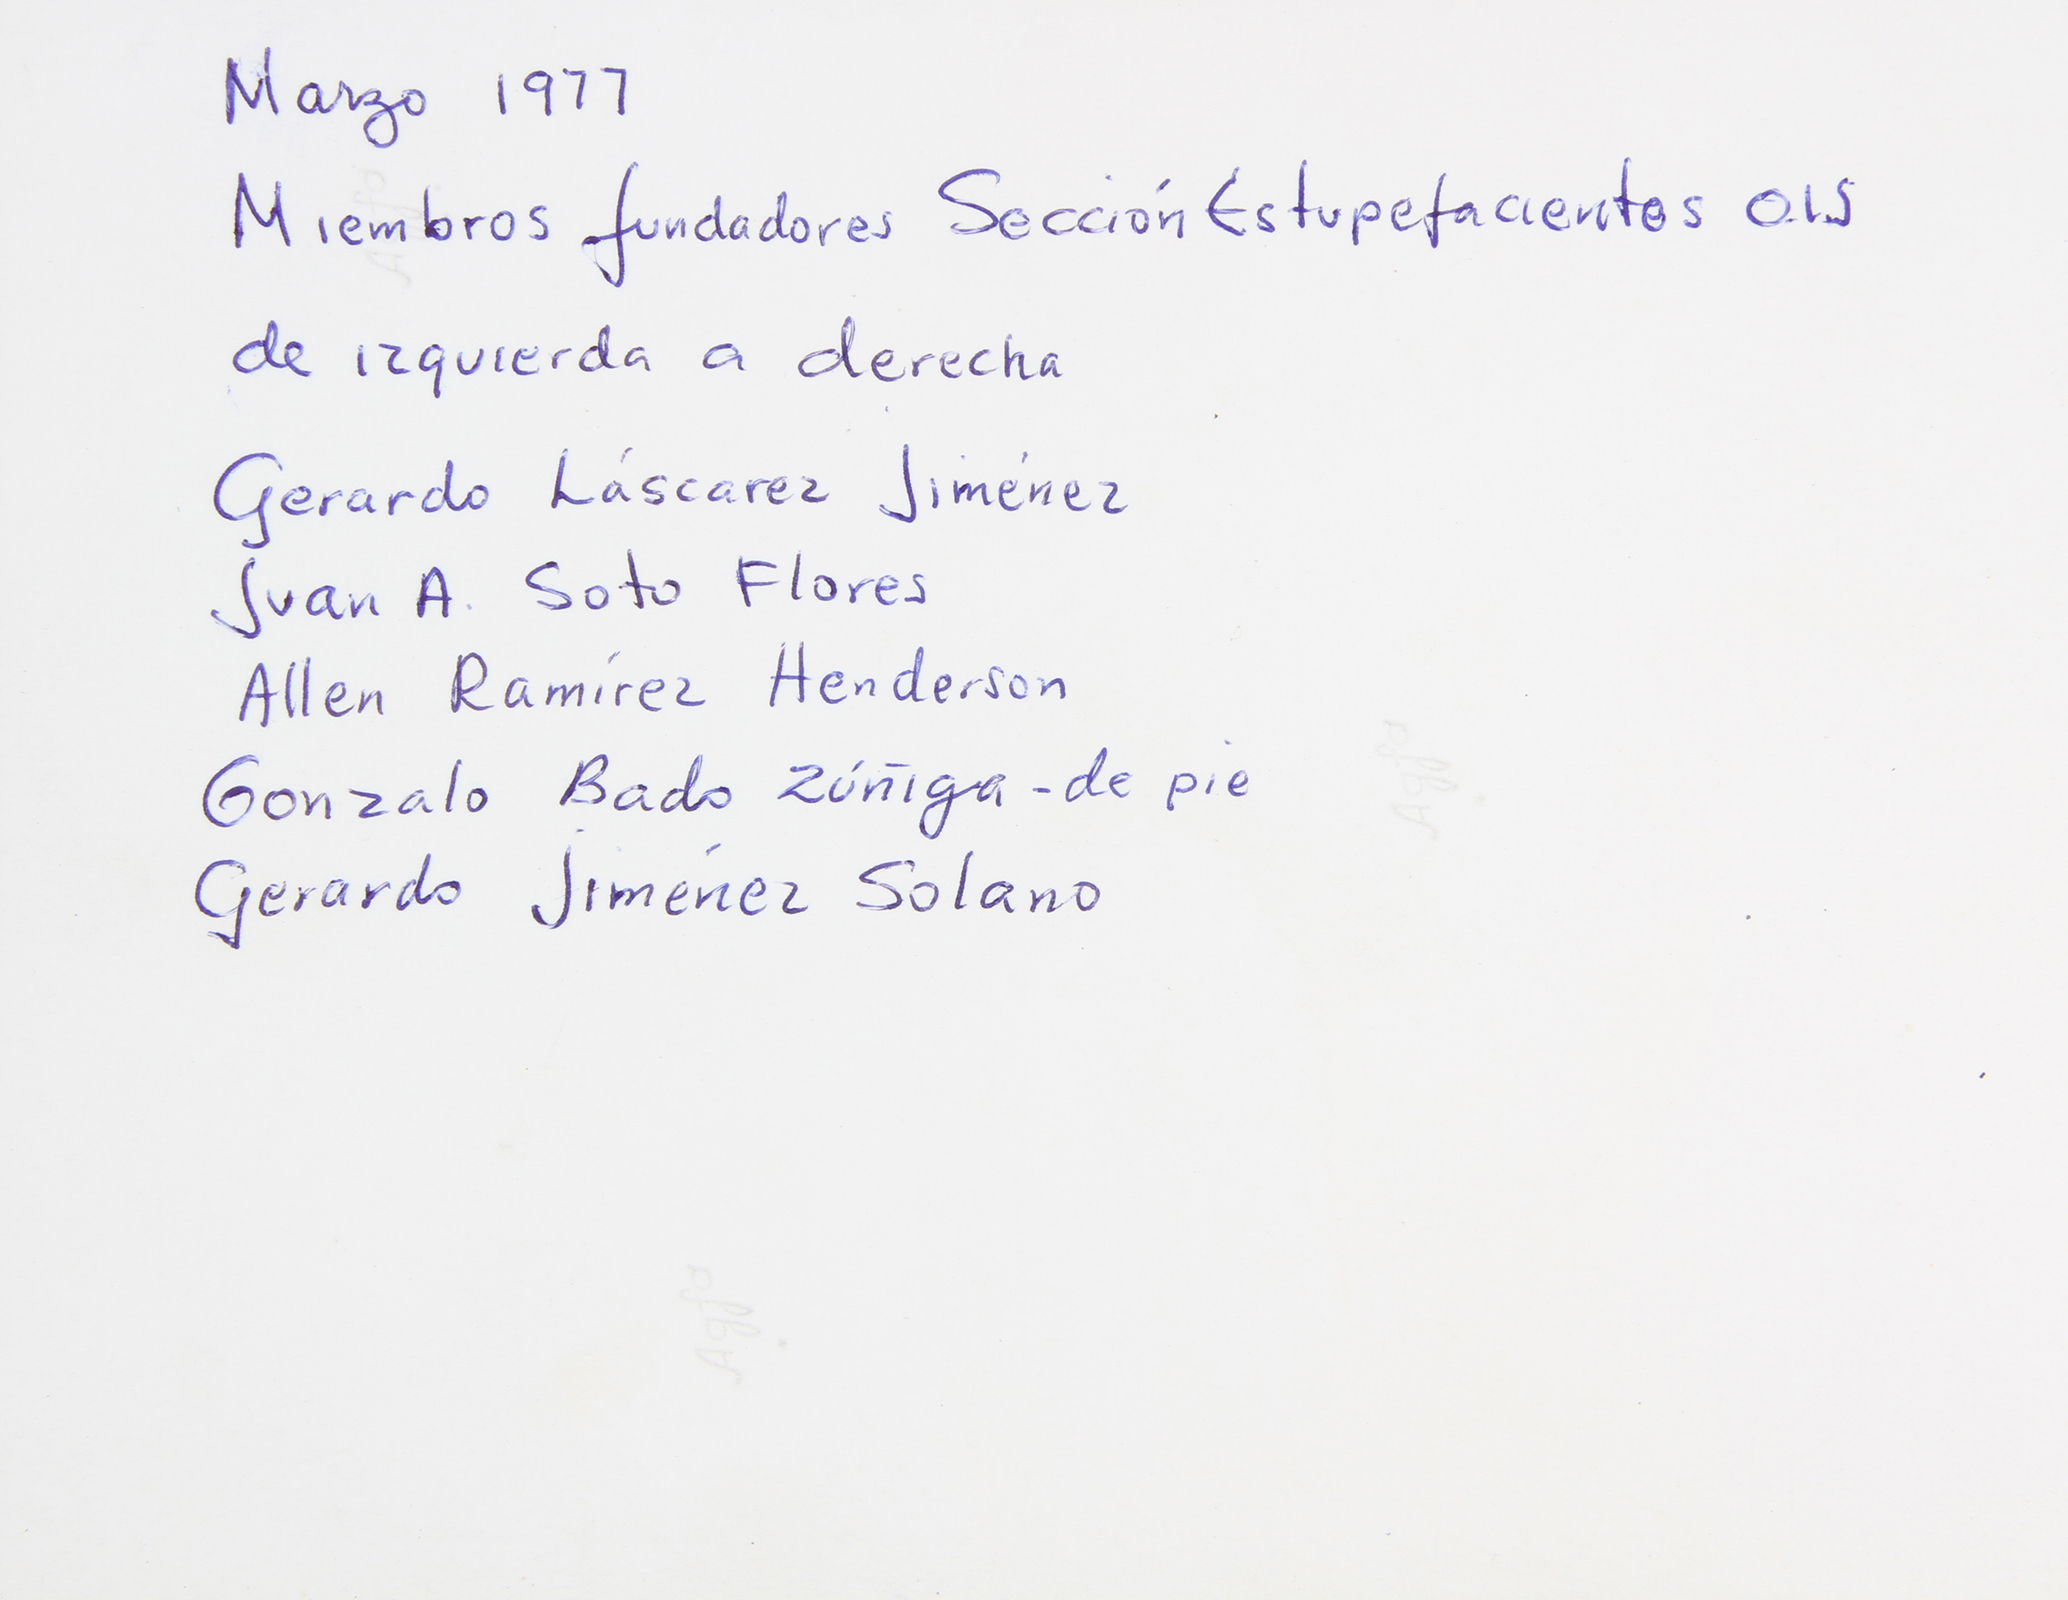 Marzo 1977
Miembros fundadores Sección Estupefacientes OIJ
de izquierda a derecha
Gerardo Láscarez Jiménez
Juan A. Soto Flores
Allen Ramírez Henderson
Gonzalo Bado Zúñiga - de pie
Gerardo Jiménez Solano
Agfa
Agfa
Agfa